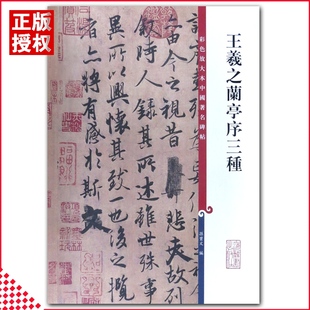 正版授权
王羲之蘭亭序三種
彩色放大本中國著名碑帖
孫寶文 編
由今之視昔 悲夫故列
敘時人錄其所述雖世殊事
異所以興懷其致一也後之攬
者亦將有感於斯文